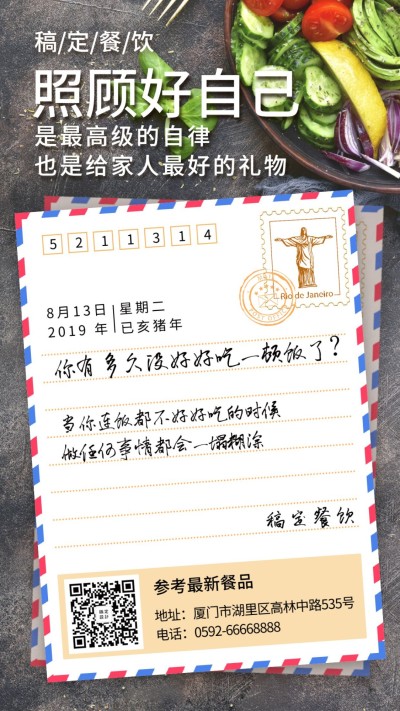 稿/定/餐/饮
照顾好自己
是最高级的自律
也是给家人最好的礼物
5 2 1 1 3 1 4
Rio de Janeiro
8月13日 星期二
2019 年 己亥猪年
你有多久没好好吃一顿饭了？
当你连饭都不好好吃的时候
做任何事情都会一塌糊涂
稿定餐饮
参考最新餐品
地址：厦门市湖里区高林中路535号
电话：0592-66668888
稿定
设计